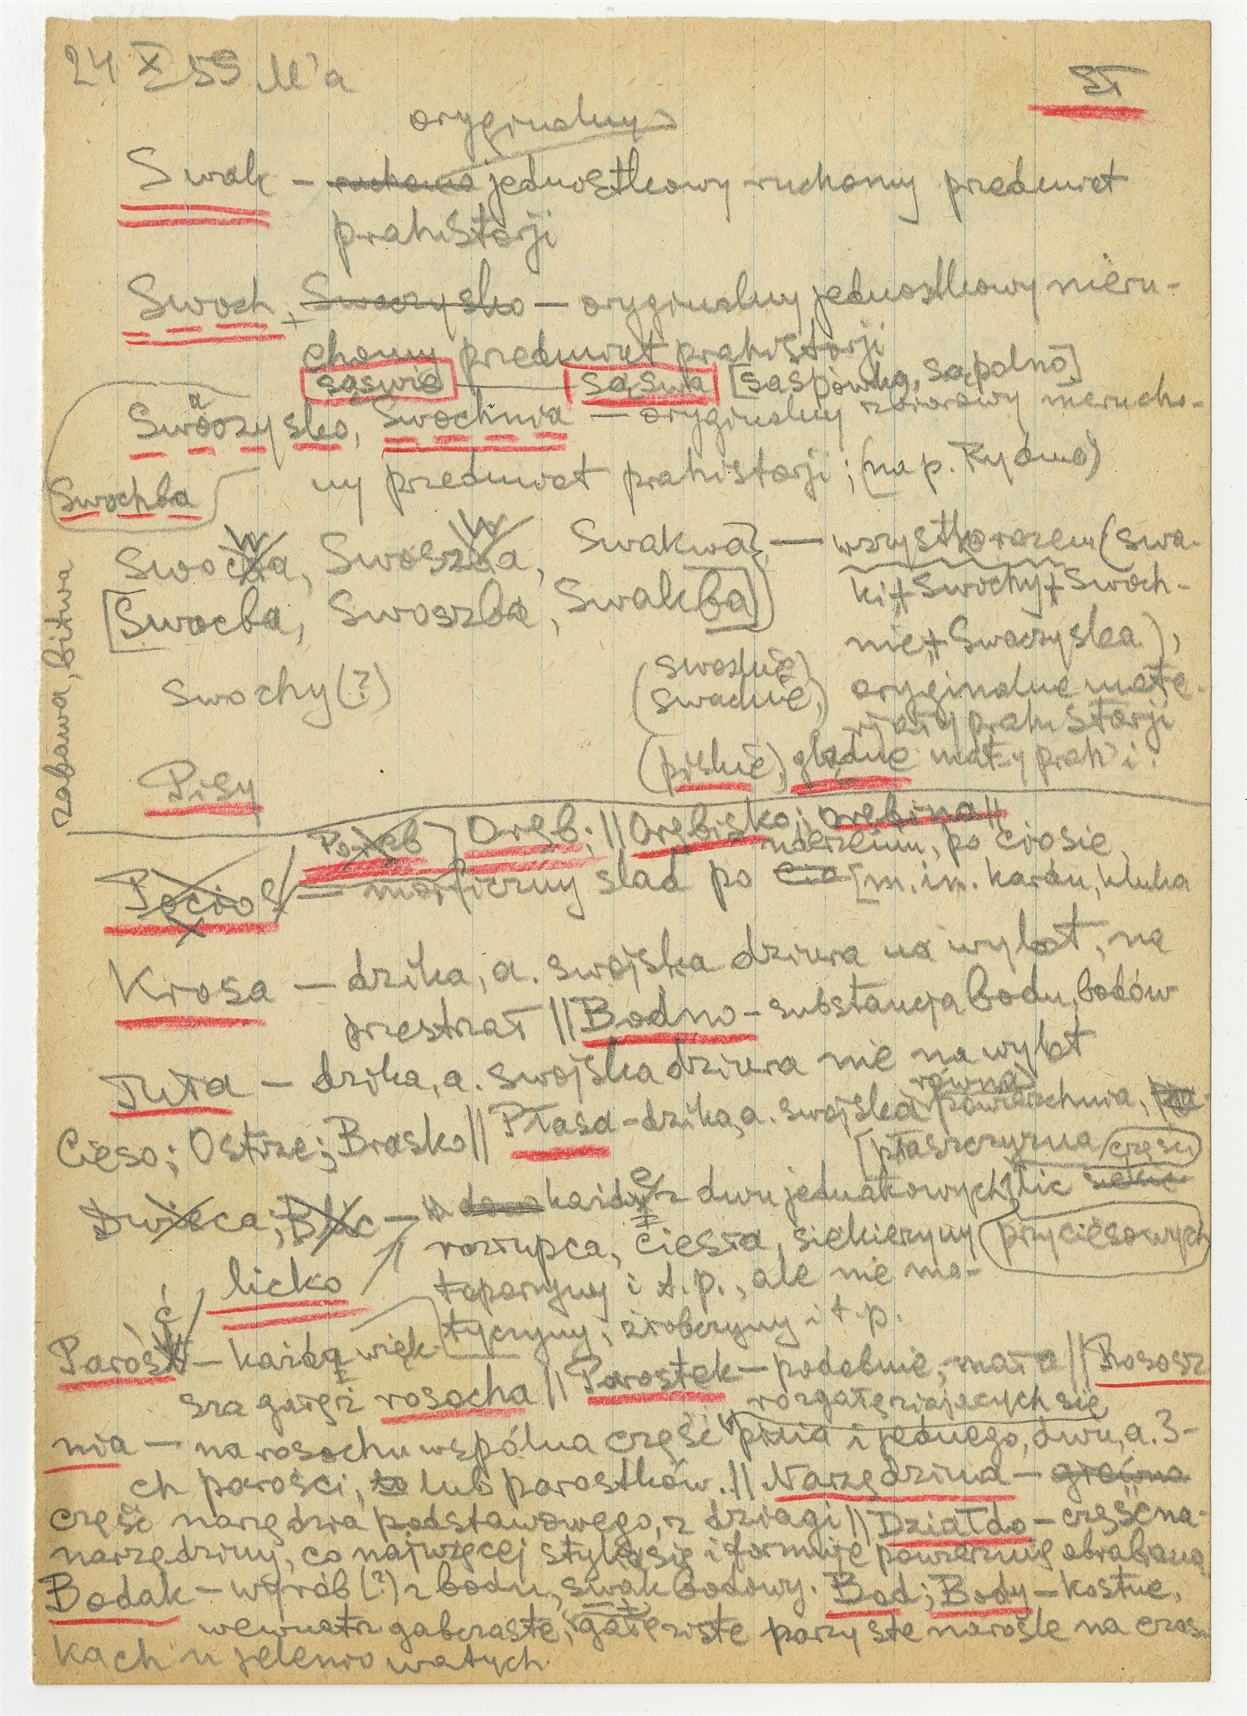 24 X 59 M'a
SŁ
oryginalny
Swak – ruchomo jednostkowy ruchomy przedmiot
prahistorji
Swoch, Swoczysko – oryginalny jednostkowy nieru-
chomy przedmiot prahistorji
sąswie sąswa [sąspówka, sąpolno]
Swoczysko, Swochnia – oryginalny zbiorowy nierucho-
my przedmiot prahistorji; (nap. Rydno)
Swochba
zabawa, bitwa
Swocwa, Swoszwa, Swakwa} – wszystko razem (swa-
[Swocba, Swoszba, Swakba]) ki + Swochy + Swoch-
nie, + Swoczyska),
swochy(?) (swosznie) (swacnie,) oryginalne mate-
rjały prahistorji
(piskie,) ględne mat-y prah'i.
Pisy
Poręb Oręb; || Orębisko; orębina ||
uderzeniu, po ciosie,
Pocios – morficzny ślad po [m. in. kardu, kluka
Krosa – dzika, a. swojska dziura na wylot, na
przestrzał || Bodno – substancja bodu, bodów
Tuła – dzika, a. swojska dziura nie na wylot
równa
Cieso; Ostrze; Brasko || Płasa – dzika, a. swojska powierzchnia,
[płaszczyzna części
Dwieca; Blic – każde z dwu jednakowych lic
rozłupca, ciesła, siekierzyny przyciesowych
licko toporzyny i t.p., ale nie mo-
tyczyny, źrobczyny i t.p.
Parość – każda więk-
sza gałęź rosocha || Parostek – podobnie, mała || Rososz
rozgałęziających się
nia – na rosochu wspólna część pnia i jednego, dwu, a. 3-
ch parości, lub parostków. || Narzędzina – główna
część narzędzia podstawowego, z dziagi || Działdo – część na-
narzędziny, co najwęcej styka się i formuje powierznię obrabianą
Bodak – wyrób (?) z bodu, swak bodowy. Bod; Body – kostne,
wewnątrz gąbczaste, gałęziste parzyste narośle na czasz-
kach u jeleniowatych.